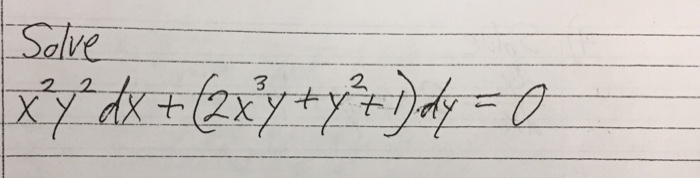 Solve
x²y² dx + (2x³y + y² + 1) dy = 0